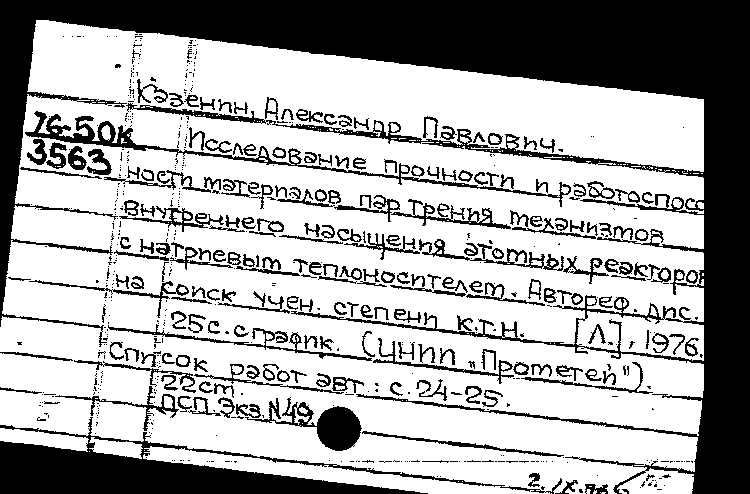 Казенин, Александр Павлович.
76-50к
3563
Исследование прочности и работоспосо
ности материалов пар трения механизмов
внутреннего насыщения атомных реакторов
с натриевым теплоносителем. Автореф. дис.
на соиск учен. степени к.т.н. [Л.], 1976.
25с. с график. (ЦНИИ "Прометей").
Список работ авт: с. 24-25.
22см.
ДСП. Экз. N49